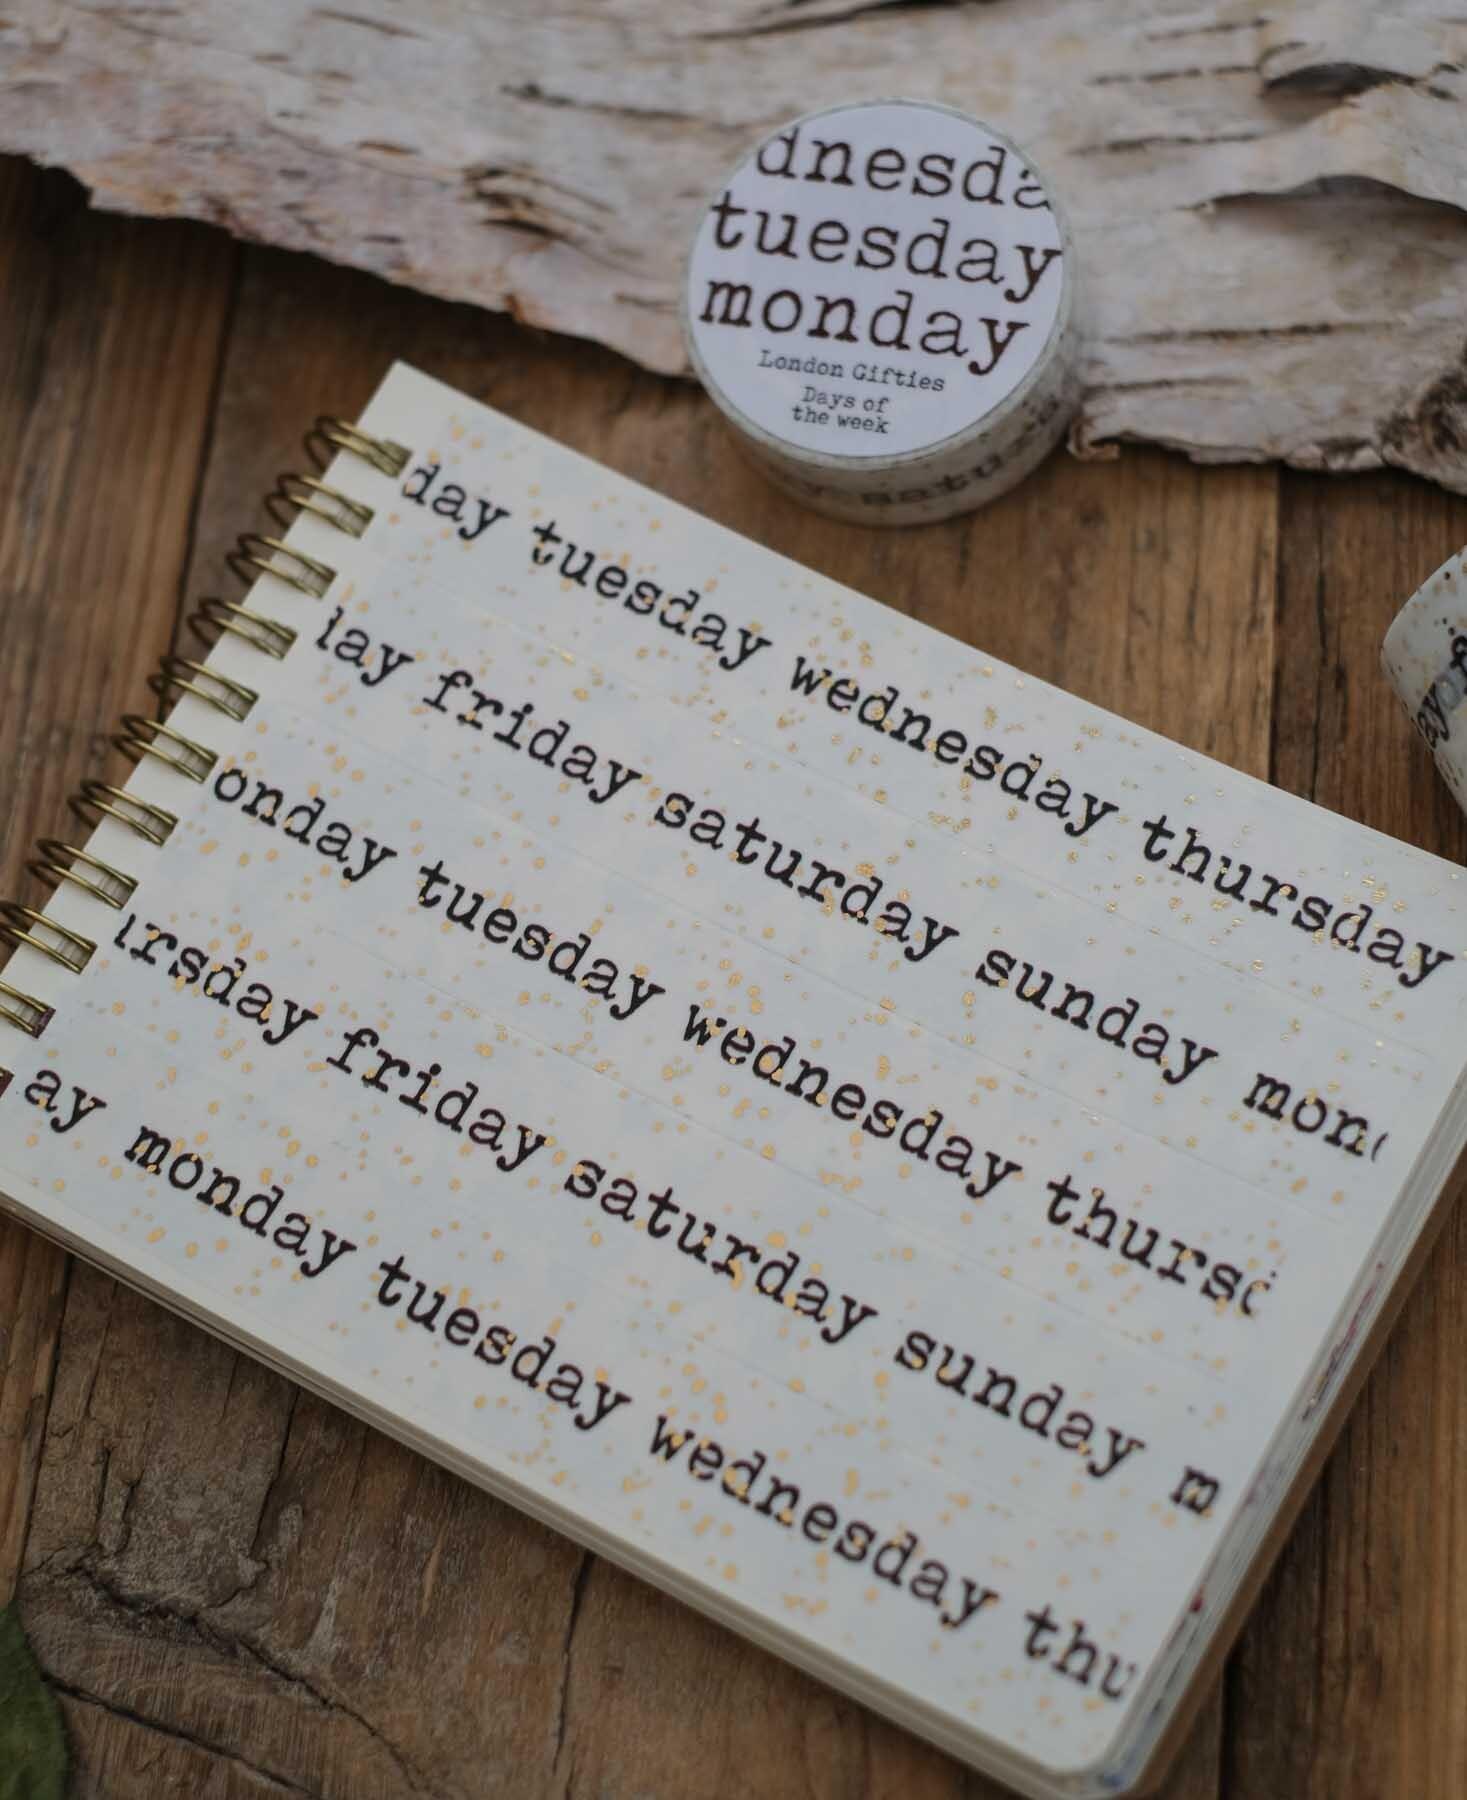 dnesda
tuesday
monday
London Gifties
Days of
the week
satu
day tuesday wednesday thursday
lay friday saturday sunday mon
onday tuesday wednesday thursd
ursday friday saturday sunday m
ay monday tuesday wednesday thu